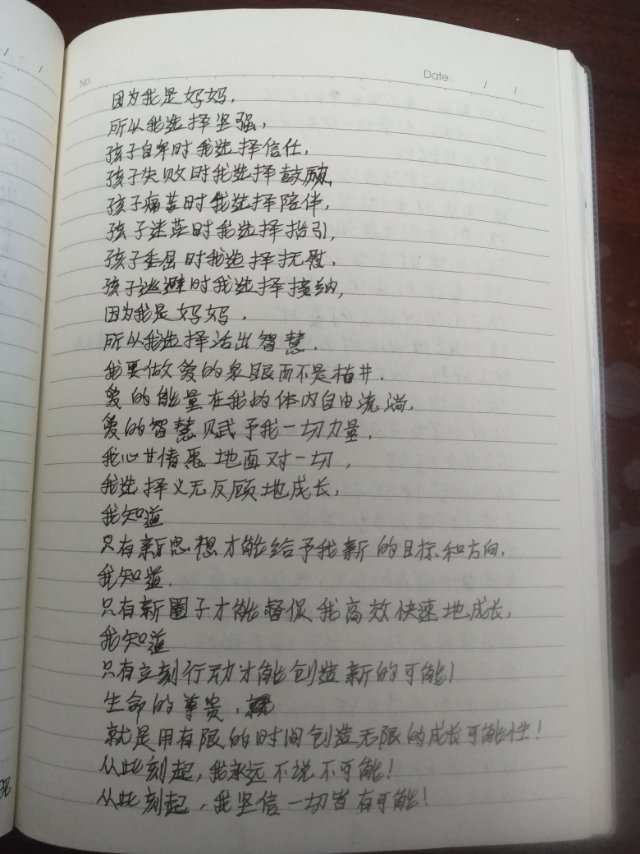 No.
Date: / /
因为我是妈妈,
所以我选择坚强,
孩子自卑时我选择信任,
孩子失败时我选择鼓励,
孩子痛苦时我选择陪伴,
孩子迷茫时我选择指引,
孩子委屈时我选择抚慰,
孩子逃避时我选择接纳,
因为我是妈妈,
所以我选择活出智慧,
我要做爱的泉眼而不是枯井,
爱的能量在我的体内自由流淌,
爱的智慧赋予我一切力量,
我心甘情愿地面对一切,
我选择义无反顾地成长,
我知道
只有新思想才能给予我新的目标和方向,
我知道,
只有新圈子才能督促我高效快速地成长,
我知道
只有立刻行动才能创造新的可能!
生命的尊贵,
就是用有限的时间创造无限的成长可能性!
从此刻起,我永远不说不可能!
从此刻起,我坚信一切皆有可能!